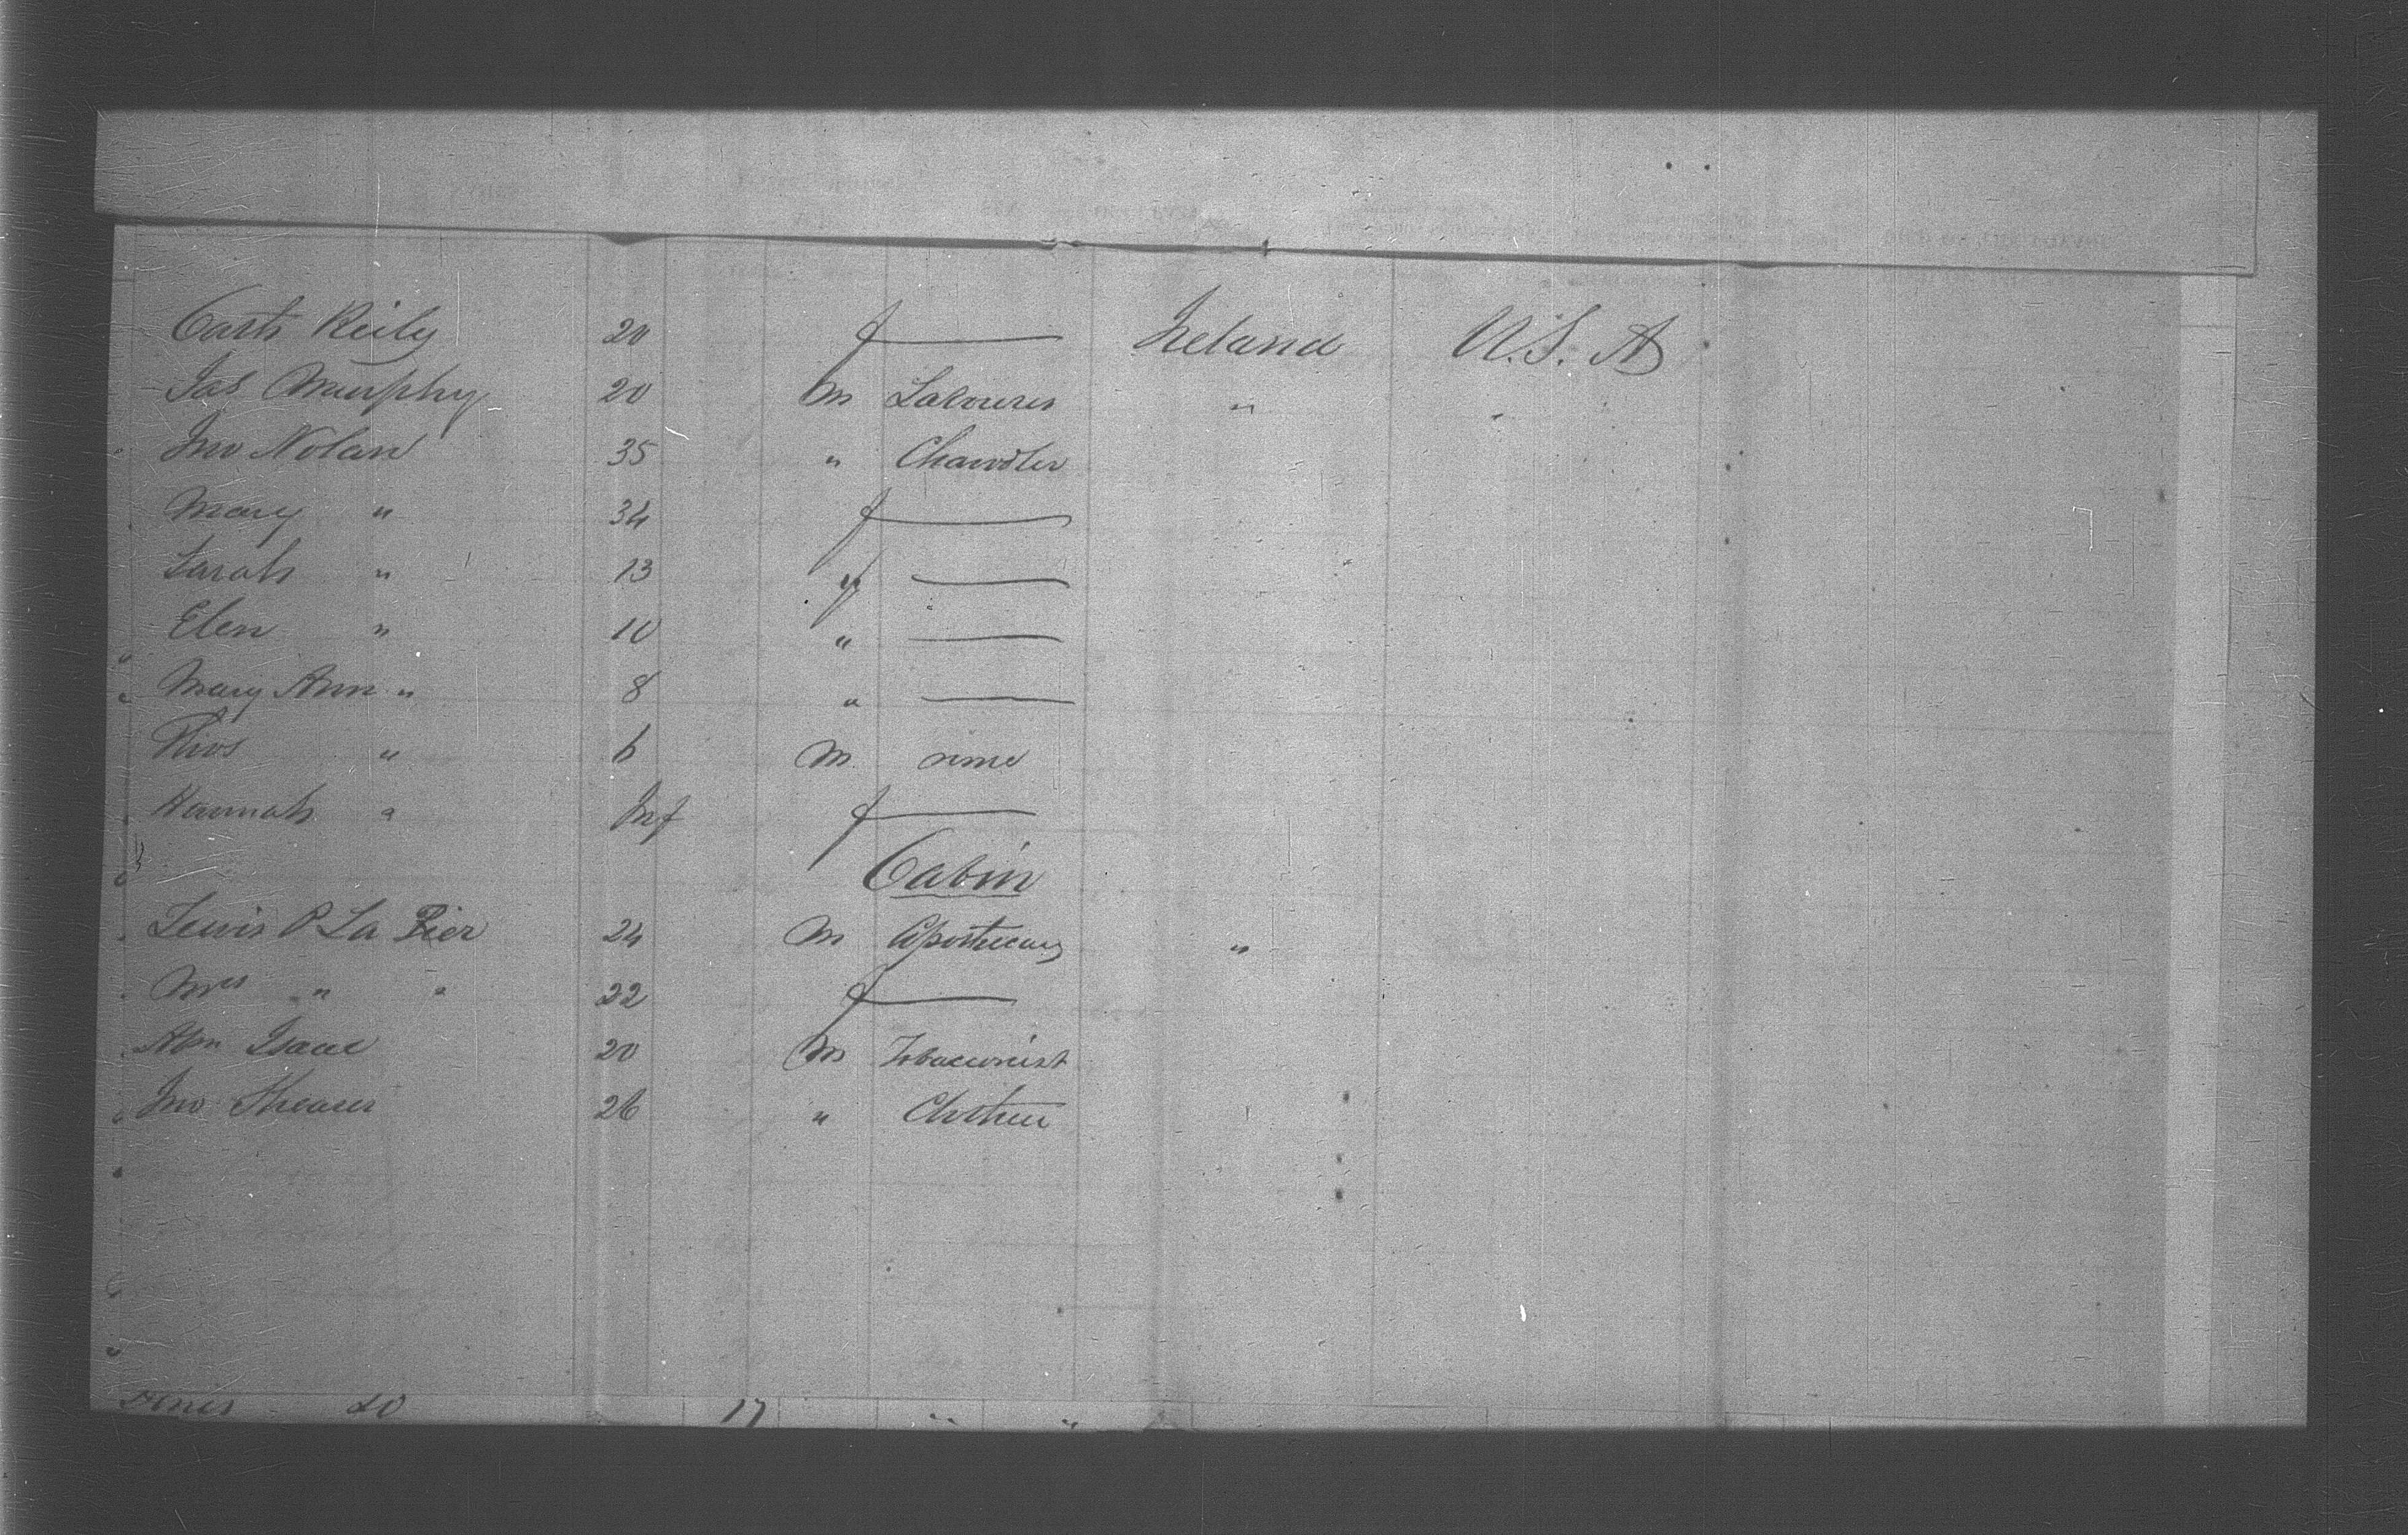 Cath Reily 20 f — Ireland U.S.A
Jas Murphy 20 m Labourer " "
Jno Nolan 35 " Chandler
Mary " 34 f —
Sarah " 13 f —
Elen " 10 " —
Mary Ann " 8 " —
Thos " 6 m none
Hannah " Inf f —
Cabin
Lewis P La Pier 24 m Apothecary "
Mrs " " 22 f —
Abm Isaac 20 m Tobacconist
Jno Shearer 26 " Clothier
17 " "